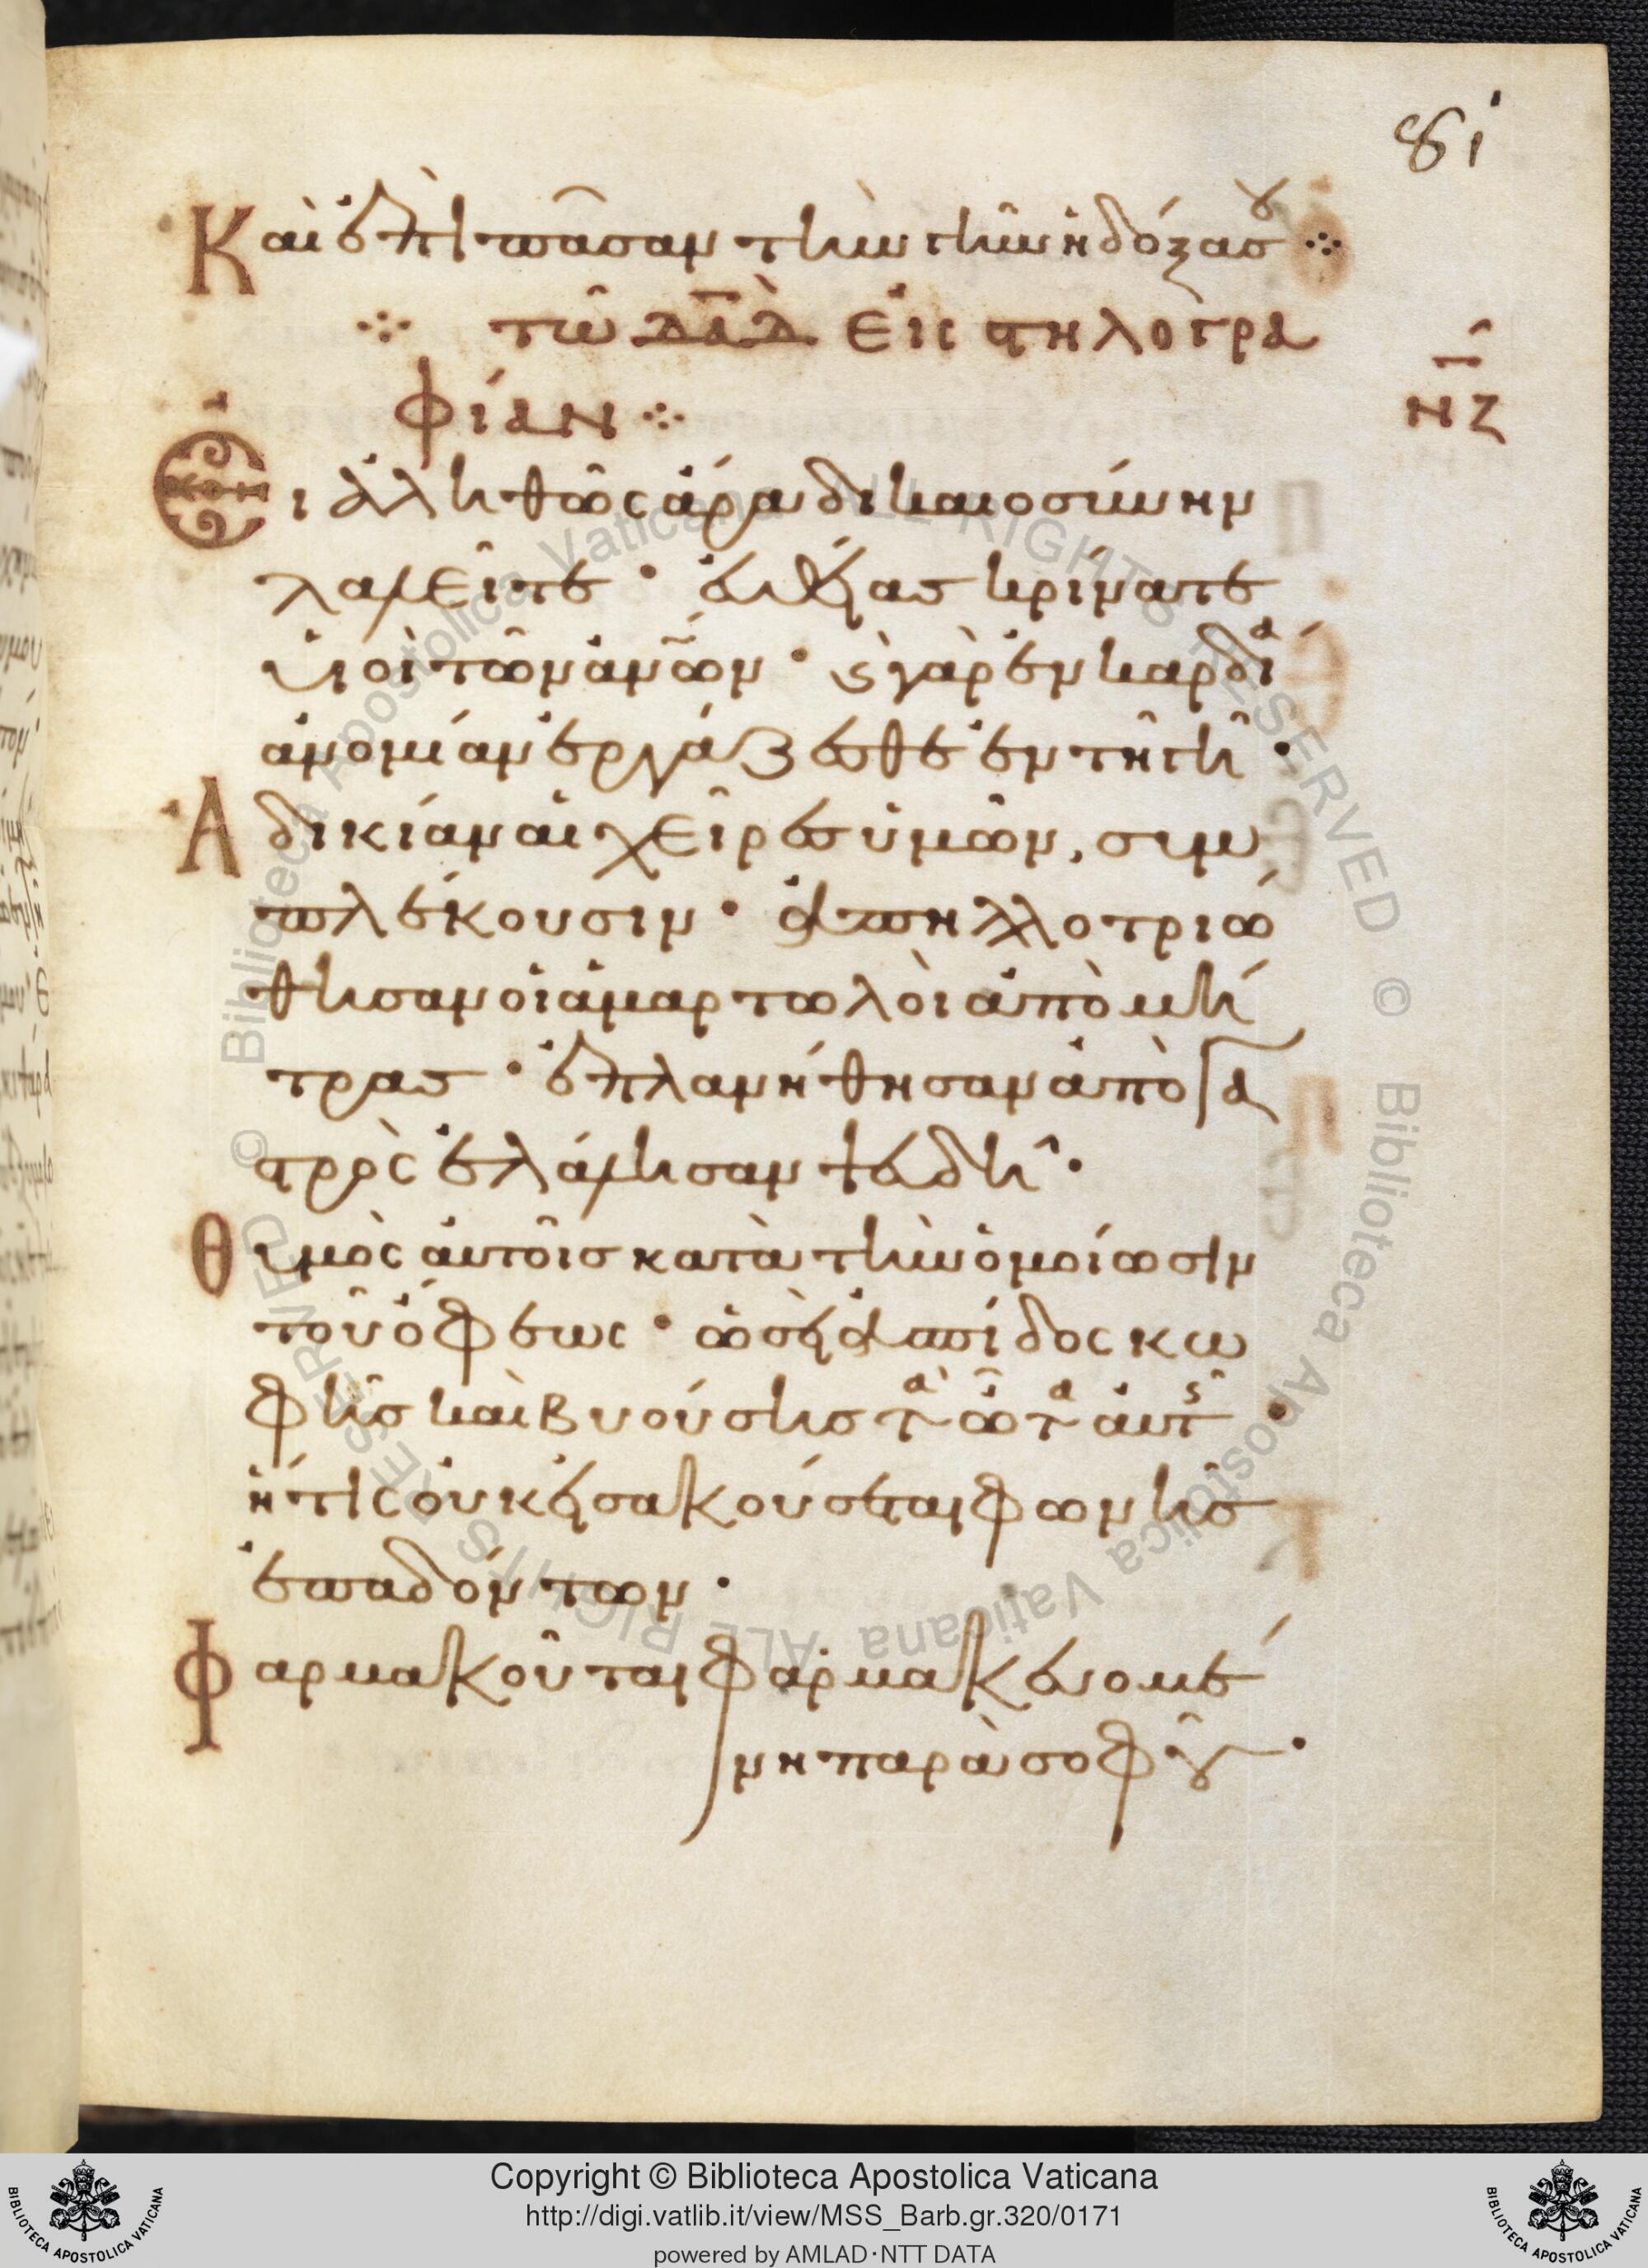 81
Καὶ ἐπὶ πᾶσαν τὴν γῆν ἡ δόξα σου
τῶ δᾱδ εἰς στηλογρα
φίαν
ΝΖ
Εἰ ἀληθῶς ἄρα δικαιοσύνην
λαλεῖτε · εὐθείας κρίματε
υἱοὶ τῶν ἀν̅ων · ϗ γὰρ ἐν καρδία
ἀνομίαν ἐργάζεσθε ἐν τῆ γῆ ·
Ἀδικίαν αἱ χεῖρες ὑμῶν, συμ
πλέκουσιν · ἀπηλλοτριώ
θησαν οἱ ἁμαρτωλοὶ ἀπὸ μή
τρας · ἐπλανήθησαν ἀπὸ γα
στρὸς ἐλάλησαν ψευδῆ ·
Θυμὸς αὐτοῖς κατὰ τὴν ὁμοίωσιν
τοῦ ὄφεως · ὡσεὶ ἀσπίδος κω
φῆς καὶ βυούσης τὰ ὦτα αὐτῆς ·
ἥτις οὐκ εἰσακούσεται φωνῆς
ἐπαδόντων ·
Φαρμακοῦται φαρμακευομέ
νη παρὰ σοφοῦ ·
Copyright © Biblioteca Apostolica Vaticana
http://digi.vatlib.it/view/MSS_Barb.gr.320/0171
powered by AMLAD·NTT DATA
BIBLIOTECA APOSTOLICA VATICANA
BIBLIOTECA APOSTOLICA VATICANA
© Biblioteca Apostolica Vaticana ALL RIGHTS RESERVED © Biblioteca Apostolica Vaticana ALL RIGHTS RESERVED